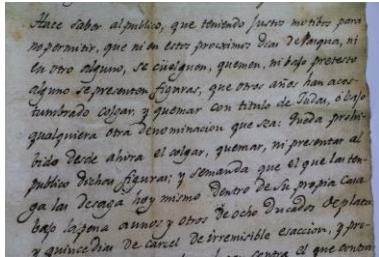 Hace saber al publico, que teniendo justos motibos para
no permitir, que ni en estos procximos Dias de Pasqua, ni
en otro alguno, se cuelguen, quemen, ni bajo pretesto
alguno se presenten figuras, que otros años han acos-
tumbrado colgar, y quemar con titulo de Judas, ó bajo
qualquiera otra denominacion que sea: Queda prohi-
bido desde ahora el colgar, quemar, ni presentar al
publico dichas figuras; y se manda que el que las ten-
ga las desaga hoy mismo dentro de su propia Casa
bajo la pena a unos y otros de ocho Ducados de plata
y quince dias de carcel de irremisible esaccion, y pro-
contra el que contra